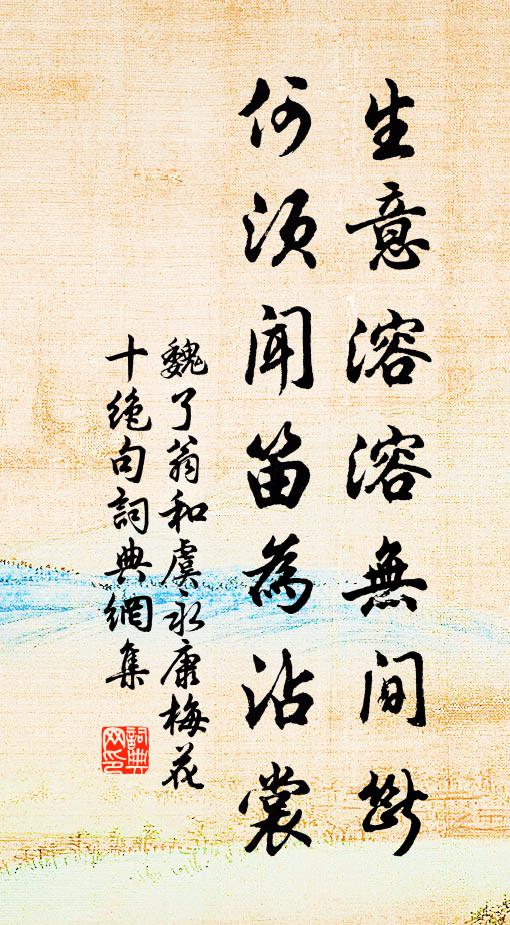 生意溶溶無間斷
何須聞笛為沾裳
魏了翁和虞永康梅花
十絕句詞典網集
詞典
网印